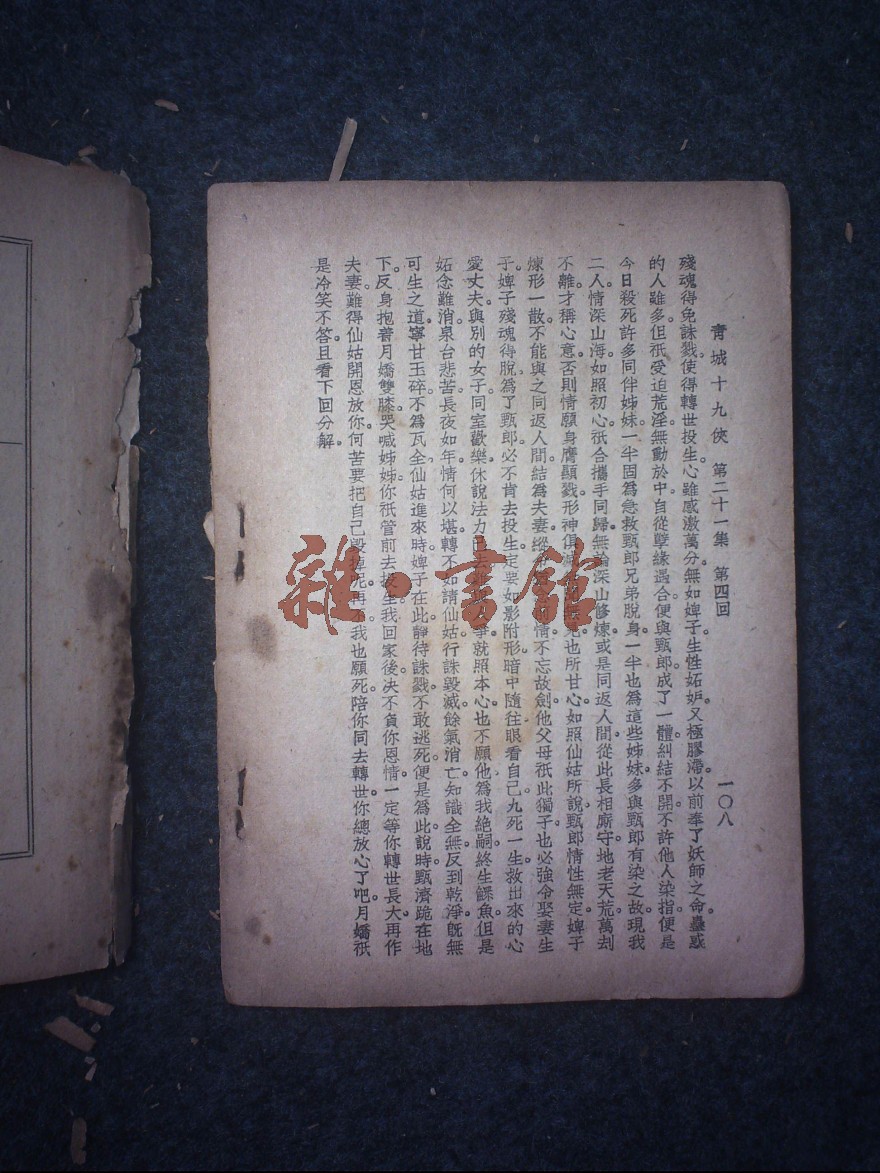 青城十九俠 第二十一集 第四回 一〇八
殘魂得免誅戮使得轉世投生心雖感激萬分無如婢子生性妬妒又極膠滯以前奉了妖師之命蠱惑
的人雖多但祇受迫荒淫無動於中自從孽緣遇合便與甄郎成了一體糾結不開不許他人染指便是
今日殺死許多同伴姊妹一半固爲急救甄郎兄弟脫身一半也爲這些姊妹多與甄郎有染之故現我
二人情深山海如照初心祇合攜手同歸無論深山修煉或是同返人間從此長相廝守地老天荒萬刦
不離才稱心意否則情願身膺顯戮形神俱也所甘心如照仙姑所說甄郎情性無定婢子
煉形一散不能與之同返人間結爲夫妻縱情不忘故劍他父母祇此獨子也必強令娶妻生
子婢子殘魂得脫爲了甄郎必不肯去投生定要如影附形暗中隨往眼看自己九死一生救出來的心
愛丈夫與別的女子同室歡樂休說法力已就照本心也不願他爲我絕嗣終生鰥魚但是
妬念難消泉台悲苦長夜如年情何以堪轉不如請仙姑行誅毀滅餘氣消亡知識全無反到乾淨旣無
可生之道寧甘玉碎不爲瓦全仙姑進來時婢子在此靜待誅戮不敢逃死便是爲此說時甄濟跪在地
下反身抱着月嬌雙膝哭喊姊姊你祇管前去投生我回家後决不負你恩情一定等你轉世長大再作
夫妻難得仙姑開恩放你何苦要把自己毀掉呢再不我也願死陪你同去轉世你總放心了吧月嬌祇
是冷笑不答且看下回分解。
雜·書館